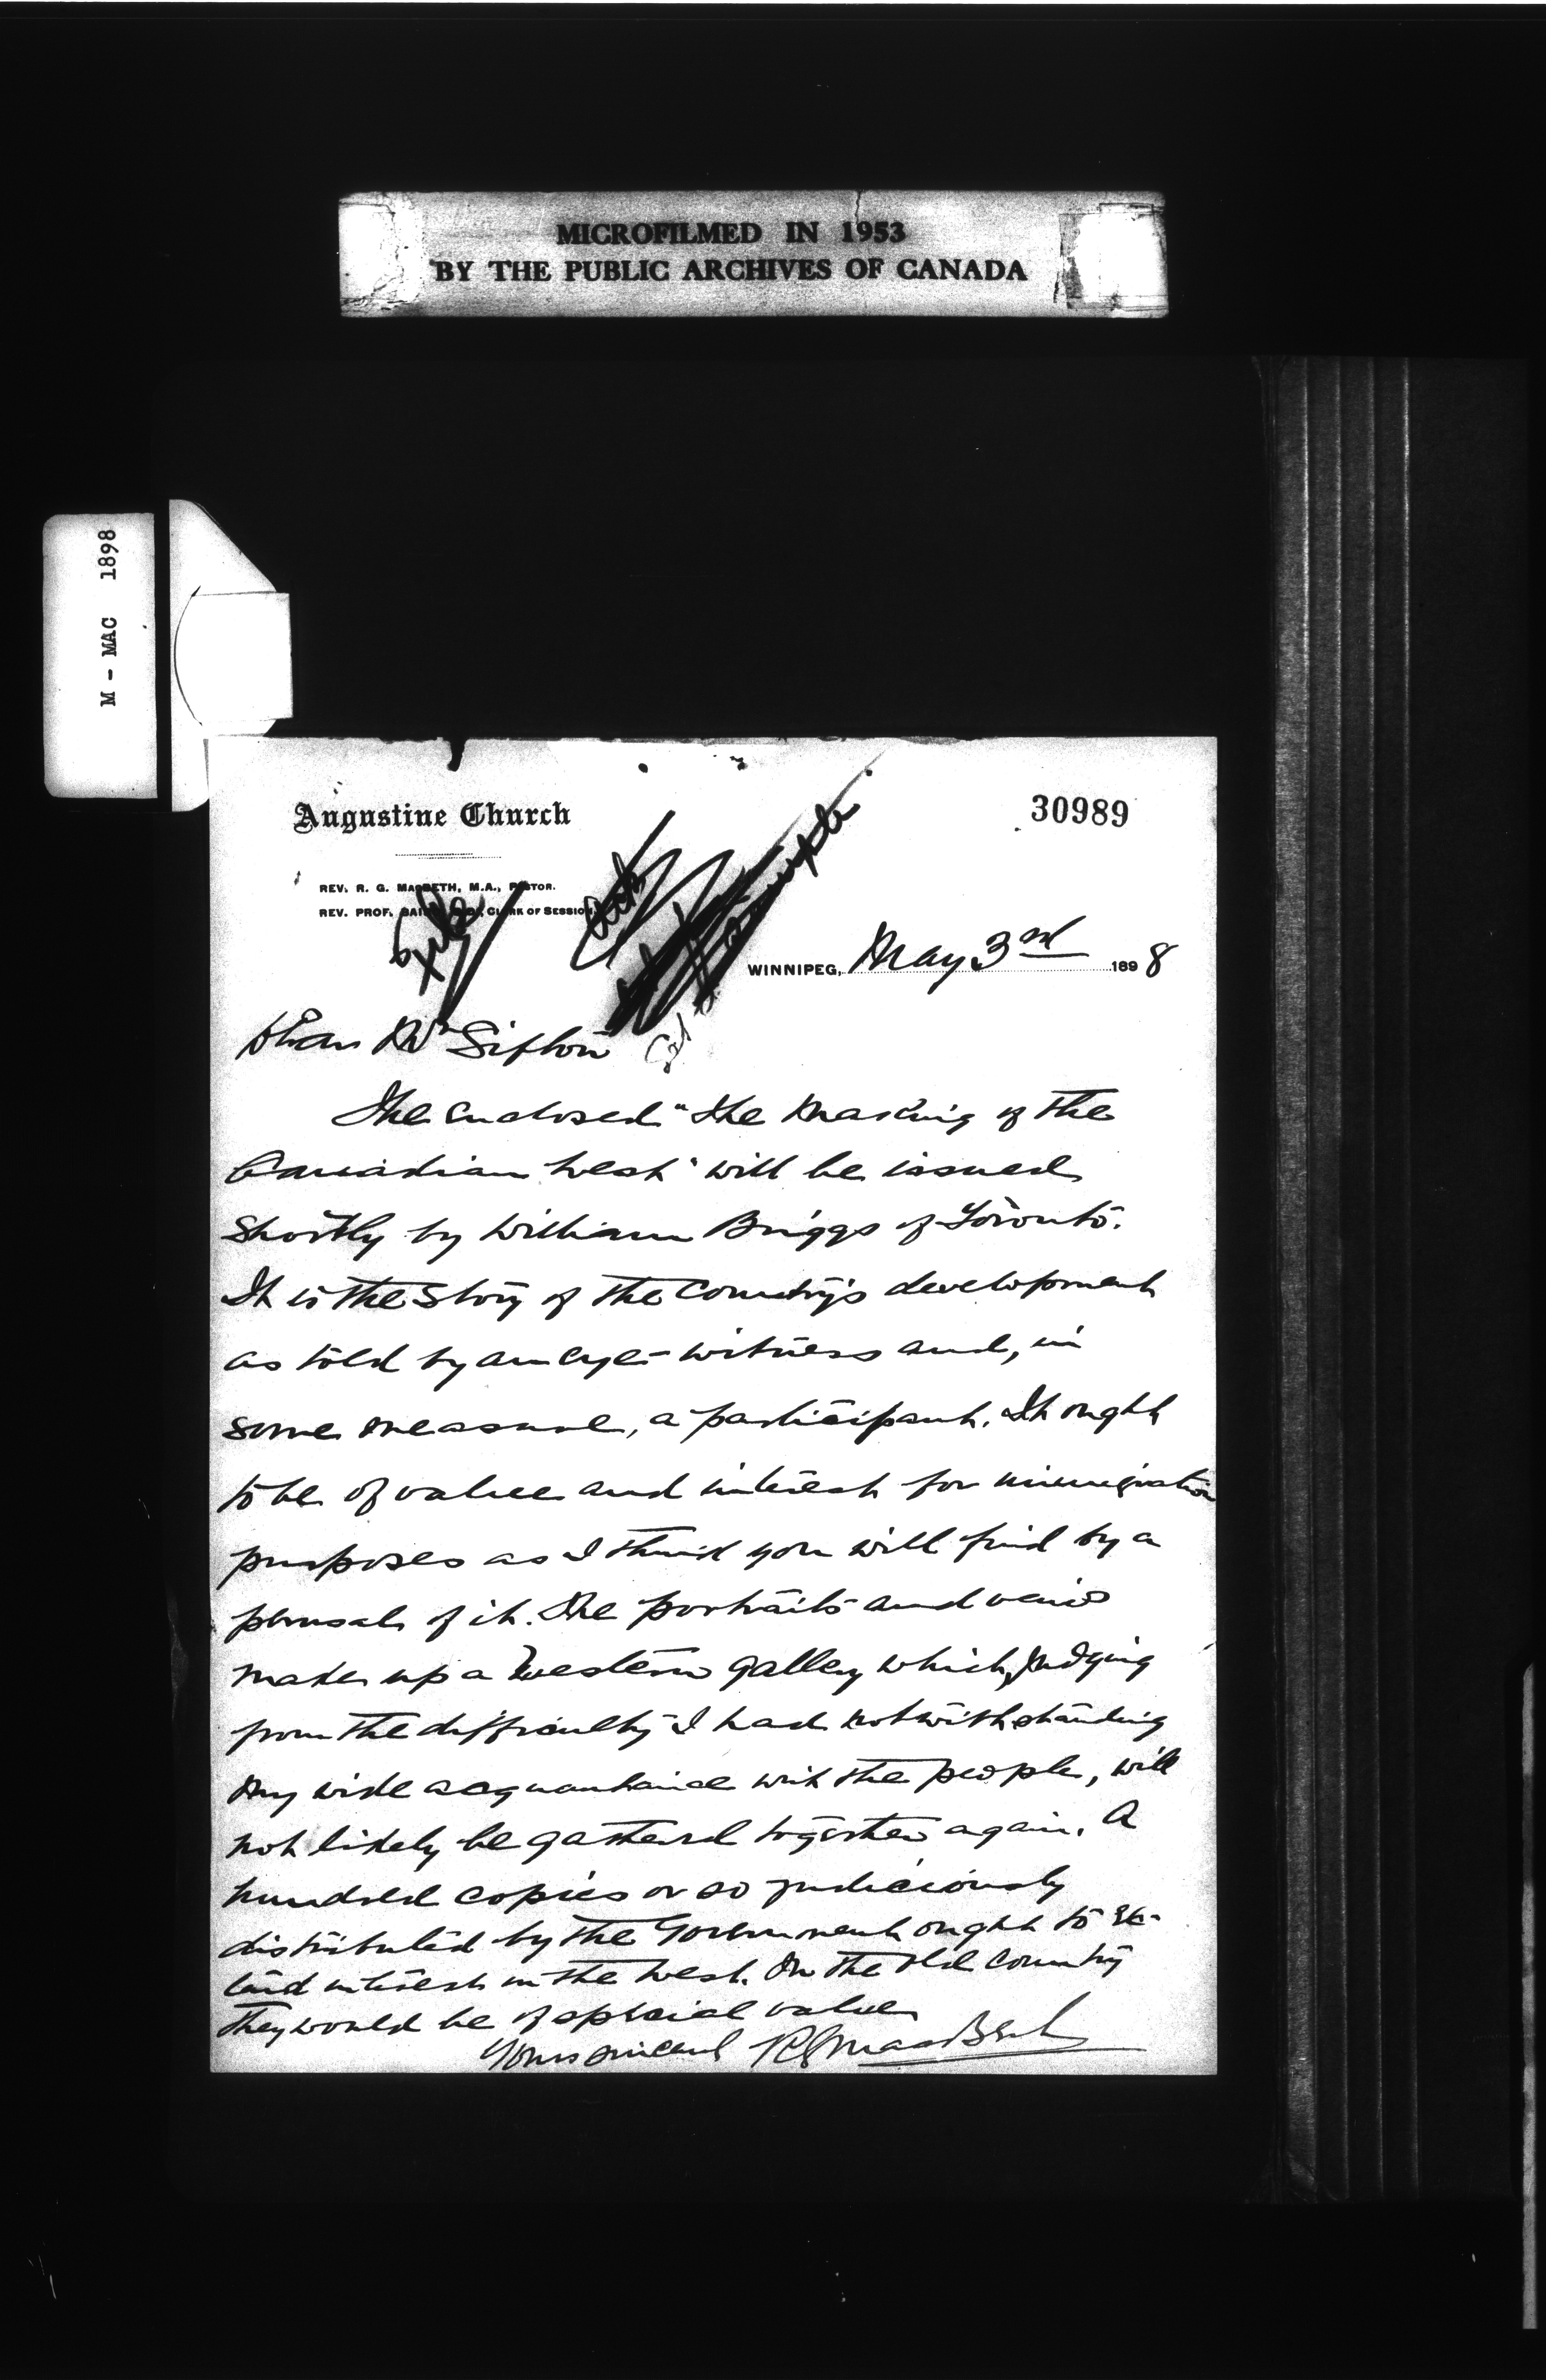 MICROFILMED IN 1953
BY THE PUBLIC ARCHIVES OF CANADA
M - MAC 1898
Augustine Church
30989
REV. R. G. MACBETH, M.A., PASTOR.
REV. PROF. CLERK OF SESSION
File
WINNIPEG, May 3rd 1898
Dear Mr Sifton
The enclosed "The Making of the
Canadian West" will be issued
shortly by William Briggs of Toronto.
It is the story of the country's development
as told by an eye-witness and, in
some measure, a participant. It ought
to be of value and interest for immigration
purposes as I think you will find by a
perusal of it. The portraits and views
make up a Western gallery which, judging
from the difficulty I had notwithstanding
my wide acquaintance with the people, will
not likely be gathered together again. A
hundred copies or so judiciously
distributed by the Government ought to ex-
tend interest in the West. In the old country
they would be of special value
Yours sincerely RG MacBeth